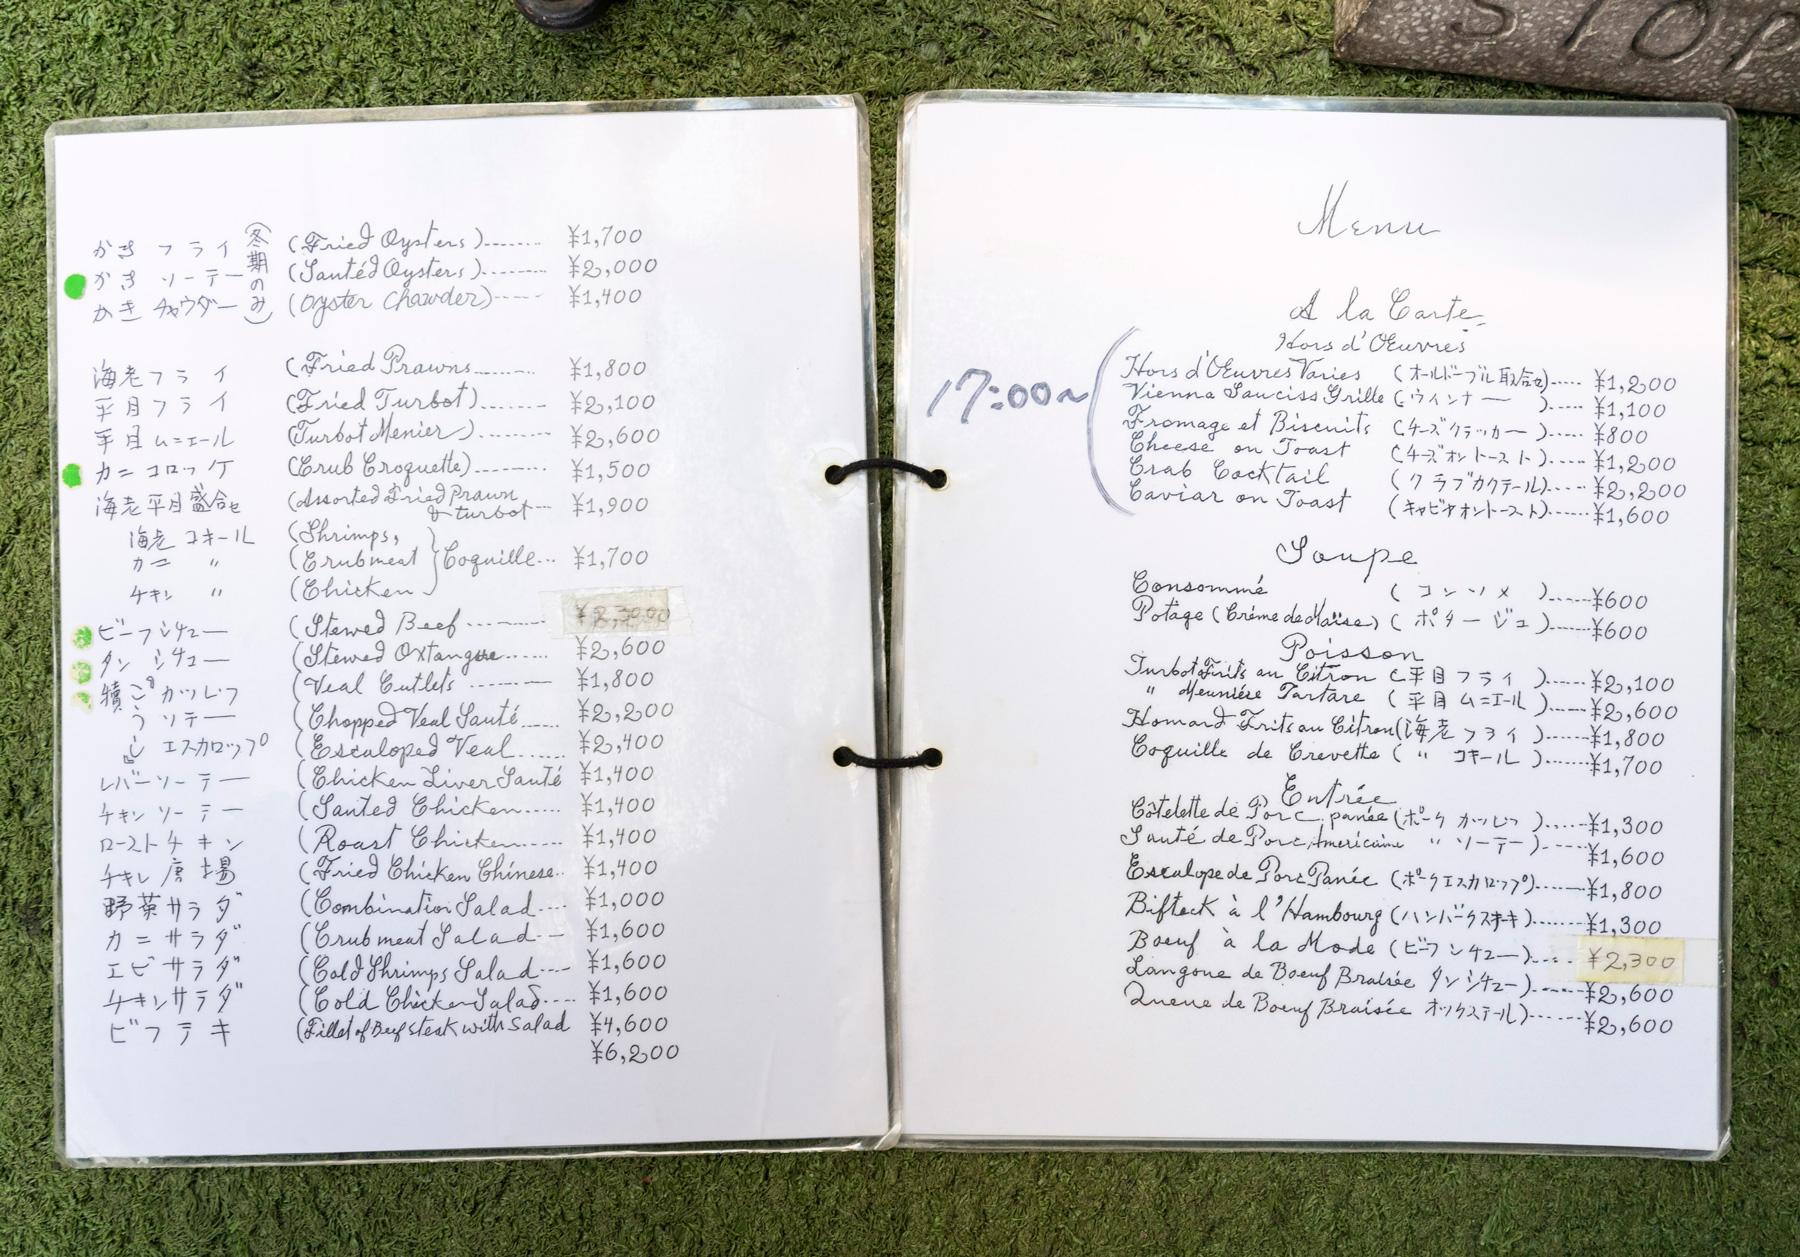 STOP
かき フライ (Fried Oysters)........ ¥1,700
かき ソーテー (Sautéd Oysters)........ ¥2,000
かき チャウダー (Oyster Chawder)...... ¥1,400
(冬期のみ)
海老フライ (Fried Prawns........ ¥1,800
平目フライ (Fried Turbot)........ ¥2,100
平目ムニエール (Turbot Menier)........ ¥2,600
カニコロッケ (Crub Croquette)........ ¥1,500
海老平目盛合せ (Assorted Fried Prawn
& turbot... ¥1,900
海老 コキール (Shrimps,
カニ 〃 (Crubmeat } Coquille... ¥1,700
チキン 〃 (Chicken
ビーフシチュー (Stewed Beef ---------
タン シチュー (Stewed Oxtangue....... ¥2,600
犢 カツレツ (Veal Cutlets ---------- ¥1,800
こうし
〃 ソテー (Chopped Veal Sauté...... ¥2,200
エスカロップ (Escaloped Veal....... ¥2,400
レバーソーテー (Chicken Liver Sauté ¥1,400
チキンソーテー (Sauted Chicken....... ¥1,400
ローストチキン (Roast Chicken....... ¥1,400
チキン唐揚 (Fried Chicken Chinese.. ¥1,400
野菜サラダ (Combination Salad.... ¥1,000
カニサラダ (Crubmeat Salad--- ¥1,600
エビサラダ (Cold Shrimps Salad.... ¥1,600
チキンサラダ (Cold Chicken Salad..... ¥1,600
ビフテキ (Fillet of Beefsteak with Salad ¥4,600
¥6,200
Menu
A la Carte
Hors d'Œuvres
17:00~
Hors d'Œuvres Varies (オールドーブル取合せ)..... ¥1,200
Vienna Sauciss Grille (ウィンナー )..... ¥1,100
Fromage et Biscuits (チーズクラッカー)..... ¥800
Cheese on Toast (チーズオントースト)..... ¥1,200
Crab Cocktail (クラブカクテール)..... ¥2,200
Caviar on Toast (キャビヤオントースト)...... ¥1,600
Soupe
Consommé (コンソメ )...... ¥600
Potage (Crème de Maïse) (ポタージュ)...... ¥600
Poisson
Turbot Frits au Citron (平目フライ )...... ¥2,100
〃 Meuniése Tartare (平目ムニエール )..... ¥2,600
Homard Frits au Citron (海老フライ )..... ¥1,800
Coquille de Crevette (〃 コキール )..... ¥1,700
Entrée
Côtelette de Porc panée (ポークカツレツ )..... ¥1,300
Sauté de Porc Americaine 〃 ソーテー )..... ¥1,600
Escalope de Porc Panée (ポークエスカロップ)...... ¥1,800
Bifteck à l'Hambourg (ハンバークステーキ)..... ¥1,300
Boeuf à la Mode (ビーフシチュー)..... ¥2,300
Langoue de Boeuf Braisée タンシチュー)...... ¥2,600
Queue de Boeuf Braisée オックステール)...... ¥2,600